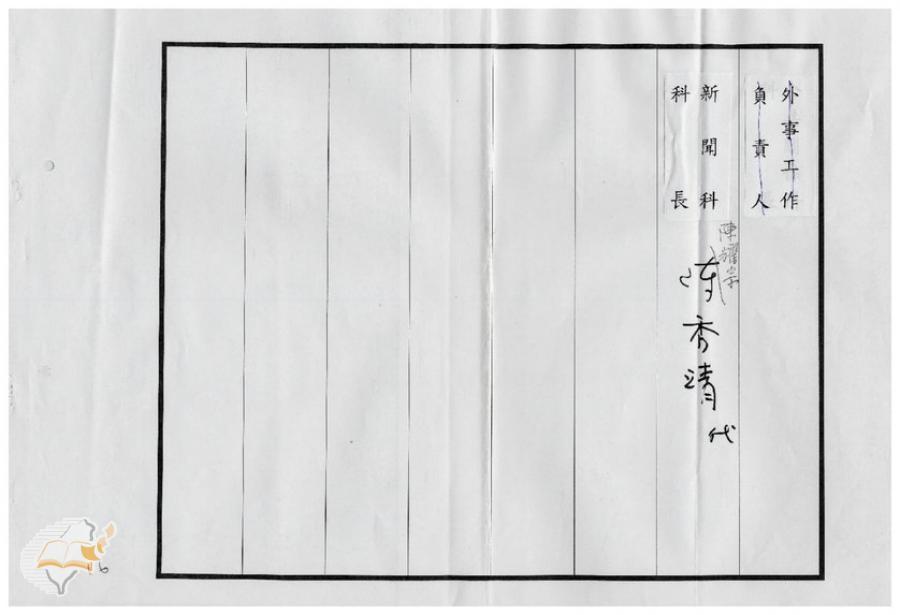 外事工作
負責人
新聞科
科長
陳耀宗
陳秀靖
代
6